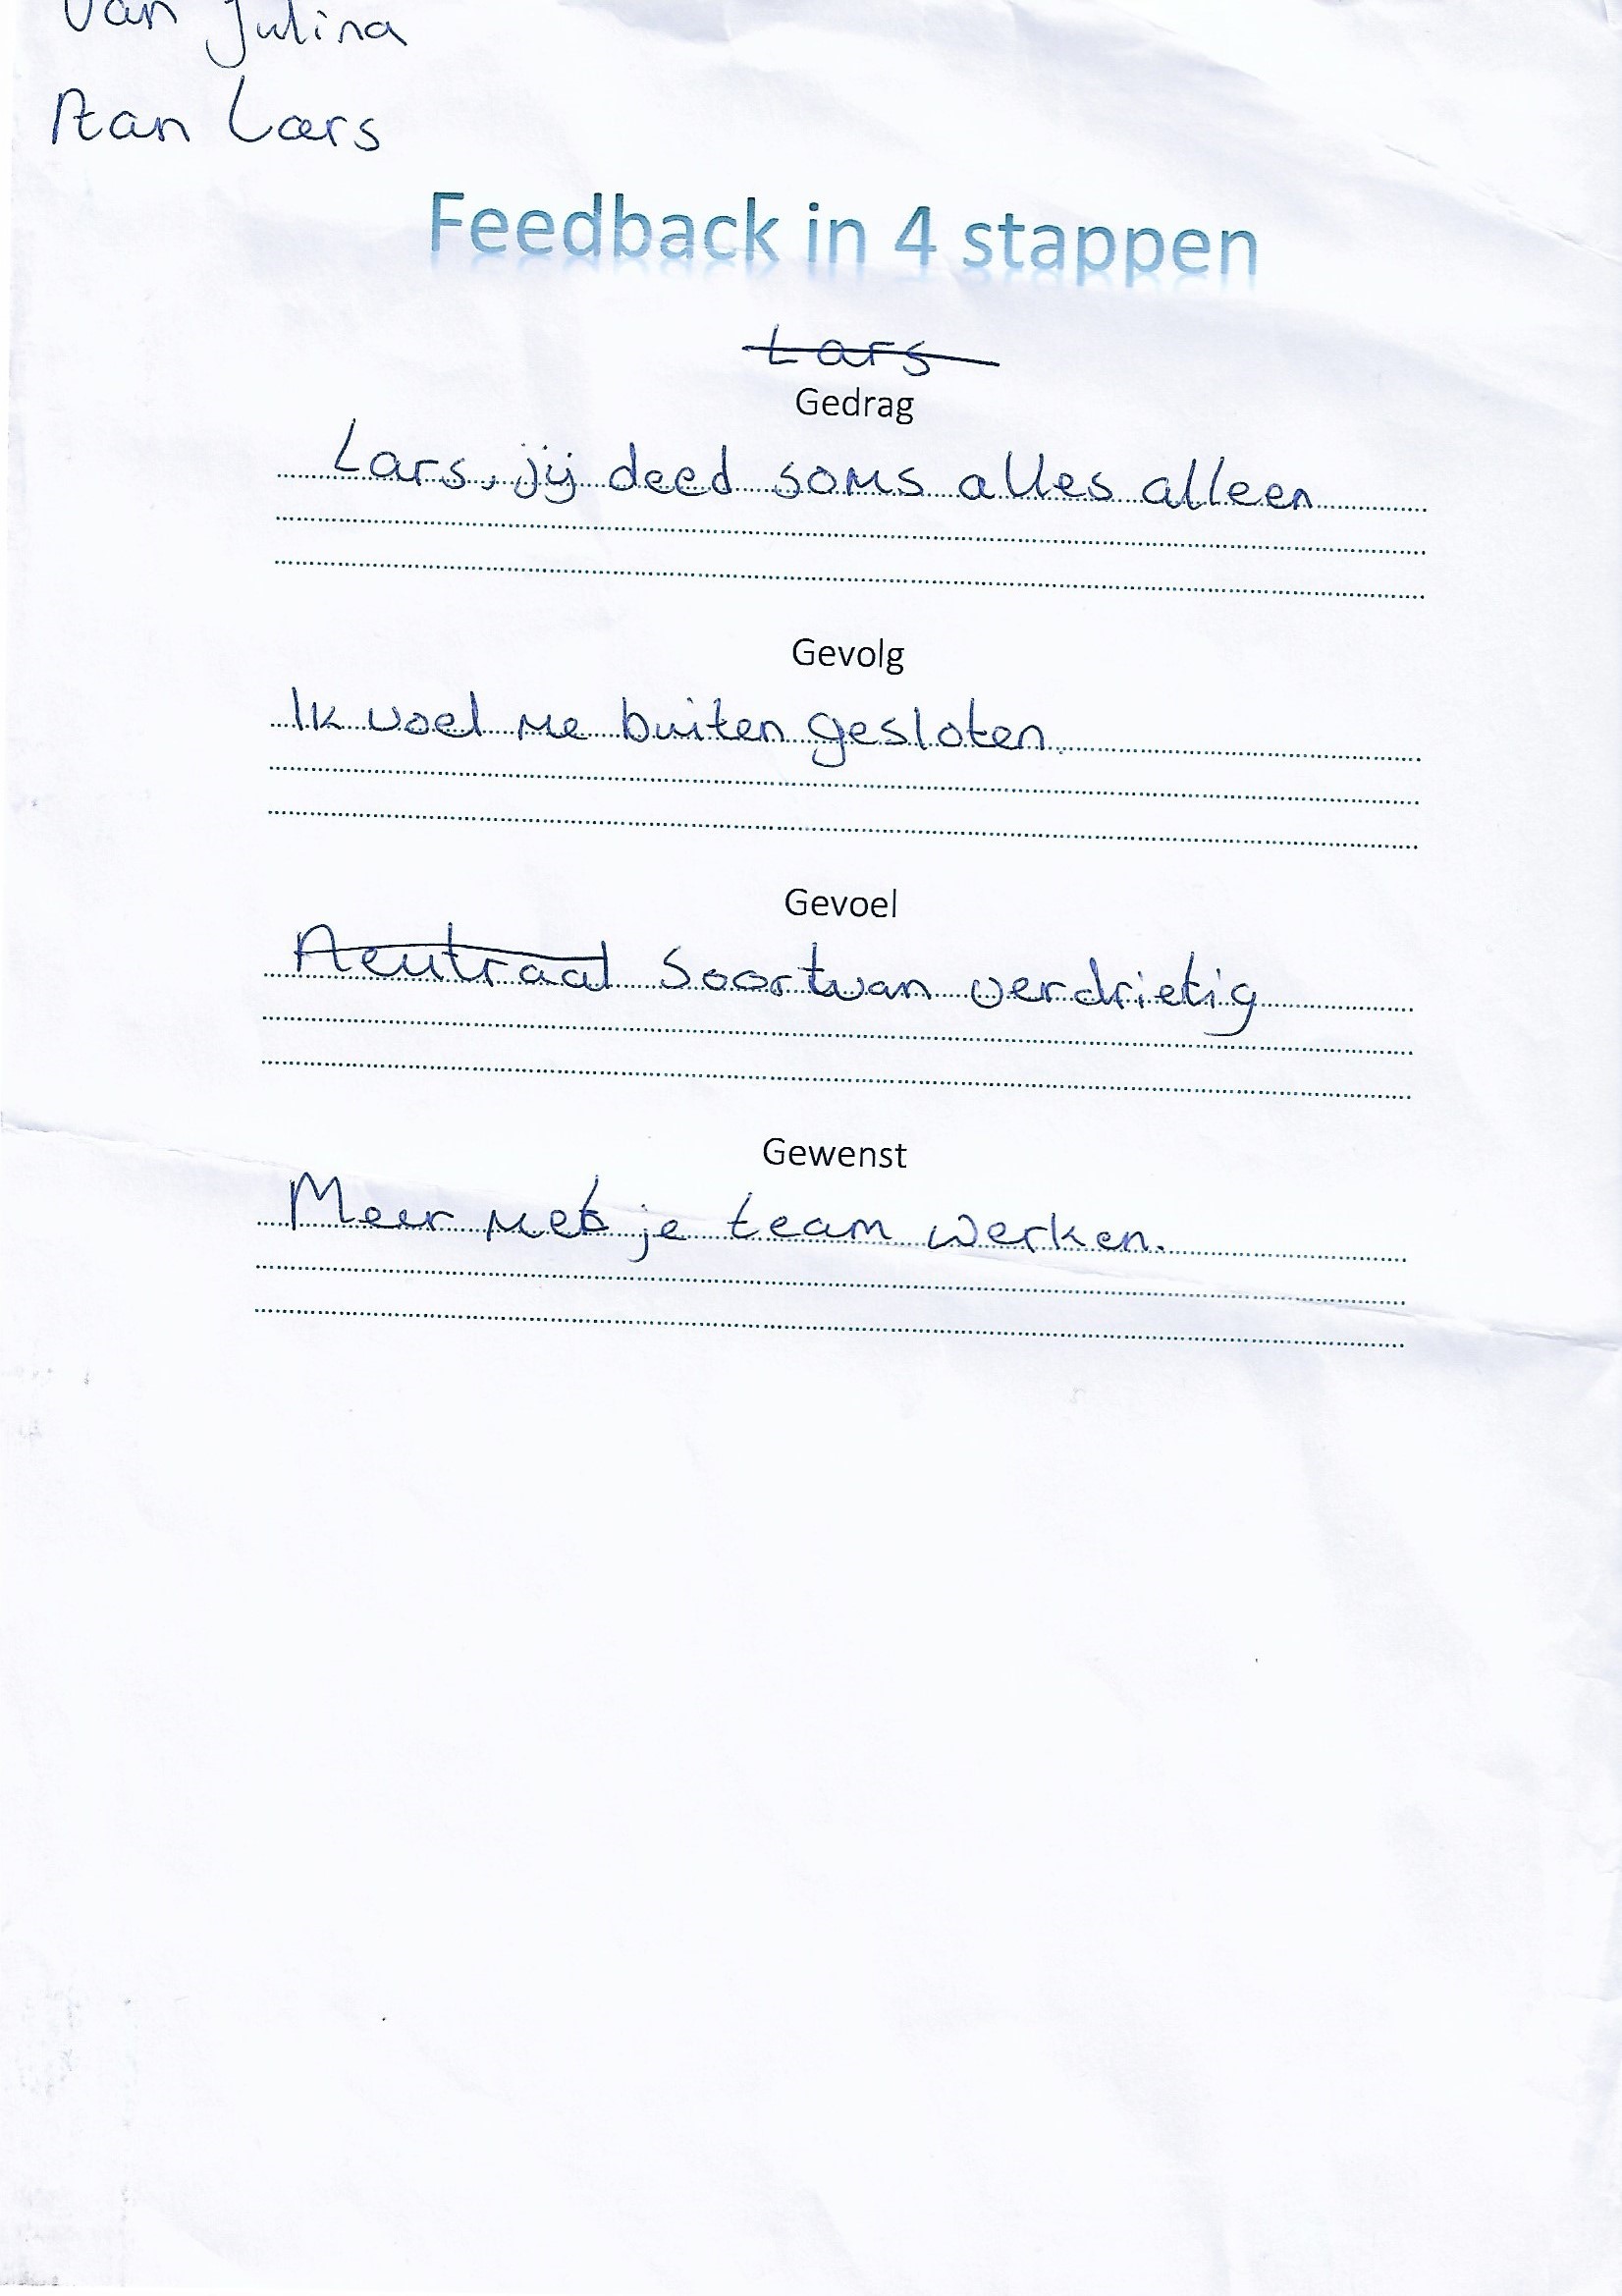 Van Julina
Aan Lars
Feedback in 4 stappen
Lars
Gedrag
Lars, jij deed soms alles alleen
Gevolg
Ik voel me buiten gesloten
Gevoel
Neutraal Soortvan verdrietig
Gewenst
Meer met je team werken.